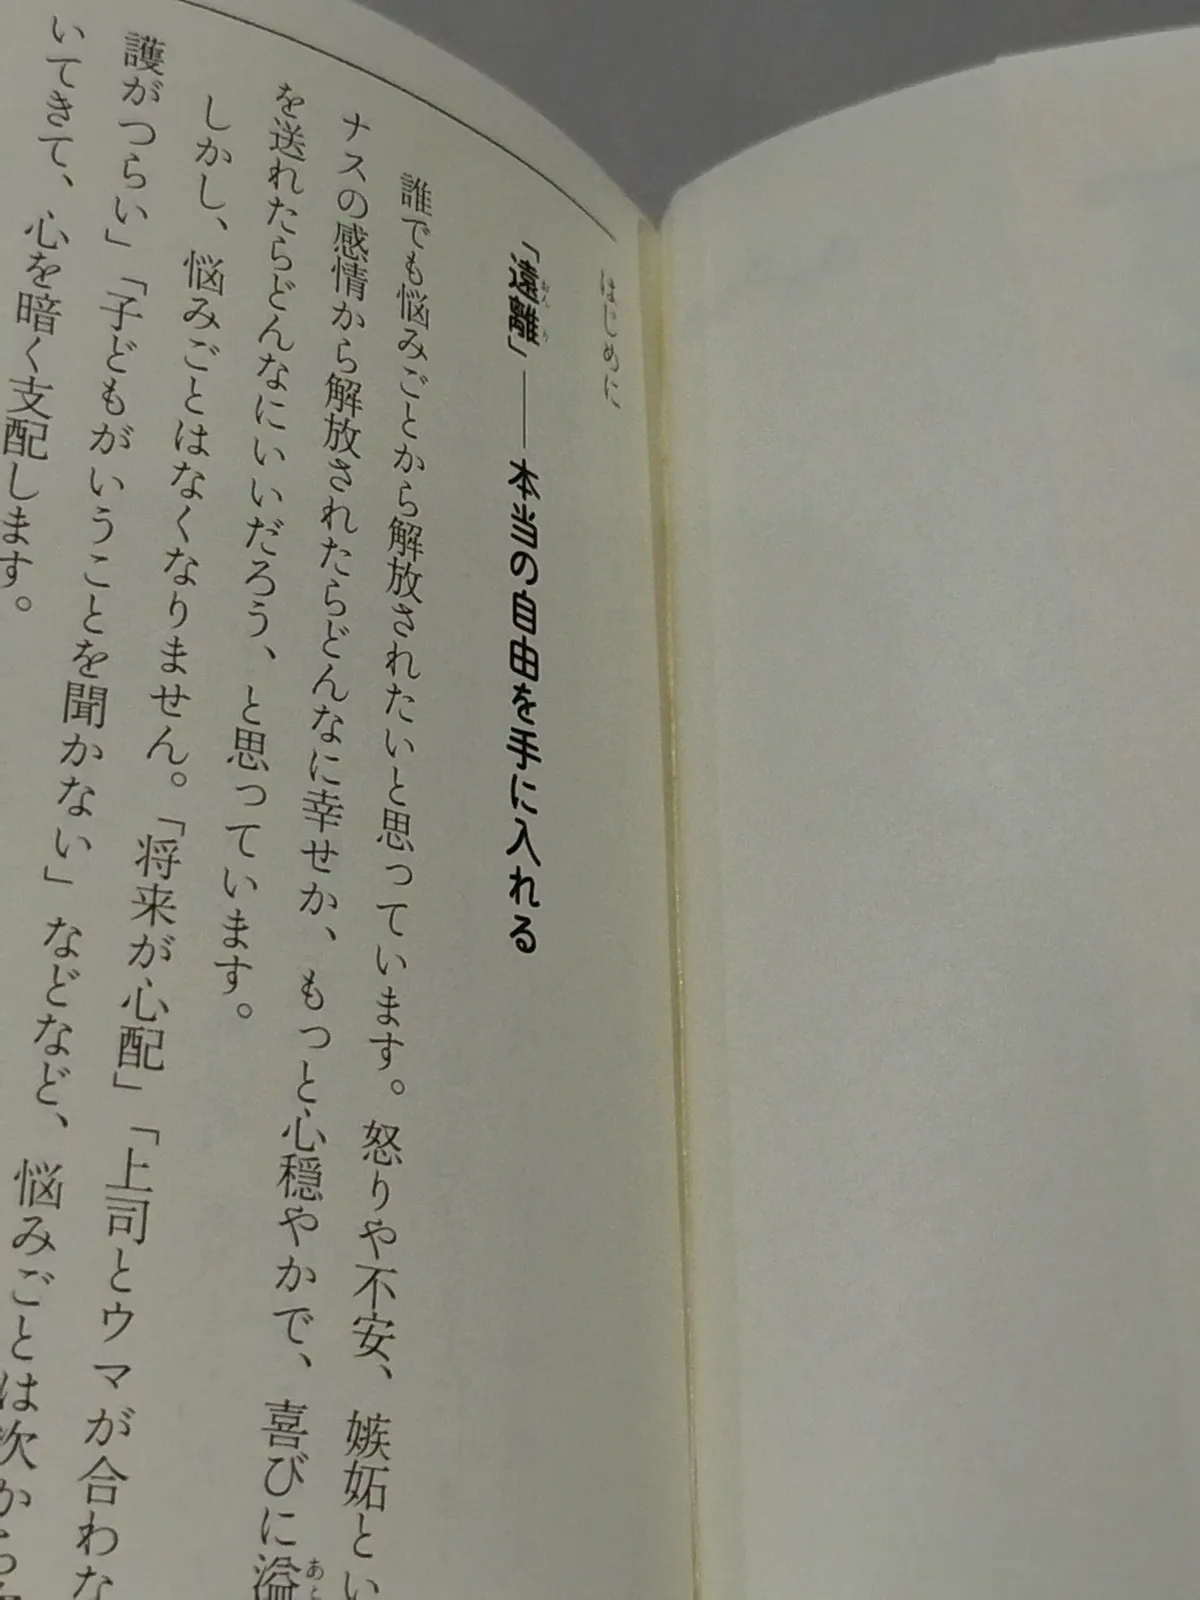 はじめに
「遠離」――本当の自由を手に入れる
おんり
誰でも悩みごとから解放されたいと思っています。怒りや不安、嫉妬とい
ナスの感情から解放されたらどんなに幸せか、もっと心穏やかで、喜びに溢
を送れたらどんなにいいだろう、と思っています。
しかし、悩みごとはなくなりません。「将来が心配」「上司とウマが合わな
護がつらい」「子どもがいうことを聞かない」などなど、悩みごとは次から
いてきて、心を暗く支配します。